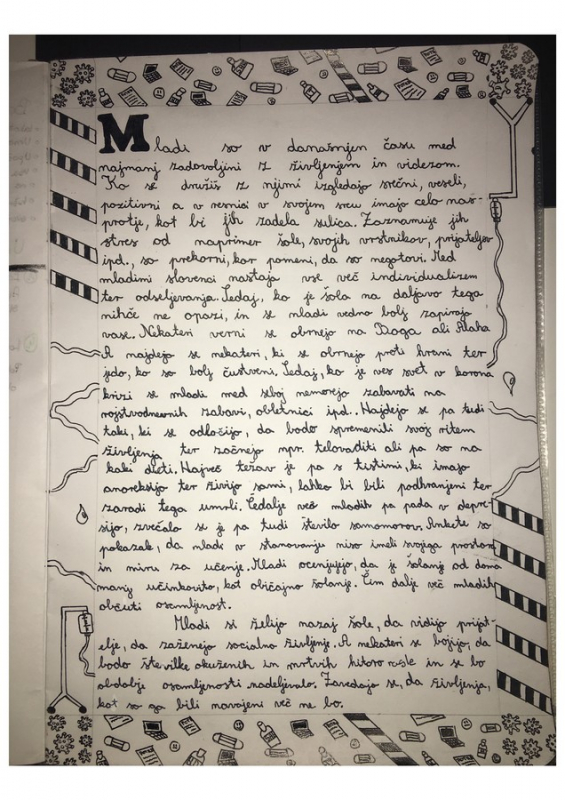 Mladi so v današnjen času med
najmanj zadovoljini z življenjem in videzom.
Ko se družiš z njimi izgledajo srčni, veseli,
pozitivni a v resnici v svojem srcu imajo celo nas-
protje, kot bi jih zadela sulica. Zaznamuje jih
stres od naprimer šole, svojih vrstnikov, prijateljev
ipd., so prekorni, kar pomeni, da so negotovi. Med
mladimi slovenci nastaja vse več individualizem
ter odseljevanja. Sedaj, ko je šola na daljavo tega
nihče ne opazi, in se mladi vedno bolj zapirajo
vase. Nekateri verni se obrnejo na Boga ali Alaha
A najdejo se nekateri, ki se obrnejo proti hrani ter
jdo, ko so bolj čustveni. Sedaj, ko je ves svet v korona
krizi se mladi med seboj nemorejo zabavati na
rojstvodnevnih zabavi, obletnici ipd. Najdejo se pa tudi
taki, ki se odločijo, da bodo spremenili svoj ritem
življenja ter začnejo npr. telovaditi ali pa so na
kaki dieti. Največ težav je pa s tistimi, ki imajo
anoreksijo ter živijo sami, lahko bi bili podhranjeni ter
zaradi tega umrli. Čedalje več mladih pa pada v depre-
sijo, zvečalo se je pa tudi število samomorov. Ankete so
pokazale, da mladi v stanovanju niso imeli svojega prostora
in miru za učenje. Mladi ocenjujejo, da je šolanje od doma
manj učinkovito, kot običajno šolanje. Čim dalje več mladih
občuti osamljenost.
Mladi si želijo nazaj šole, da vidijo prijat-
elje, da zaženejo socialno življenje. A nekateri se bojijo, da
bodo številke okuženih in mrtvih hitoro rasle in se bo
obdobje osamljenosti nadeljevalo. Zavedajo se, da življenja,
kot so ga bili navajeni več ne bo.